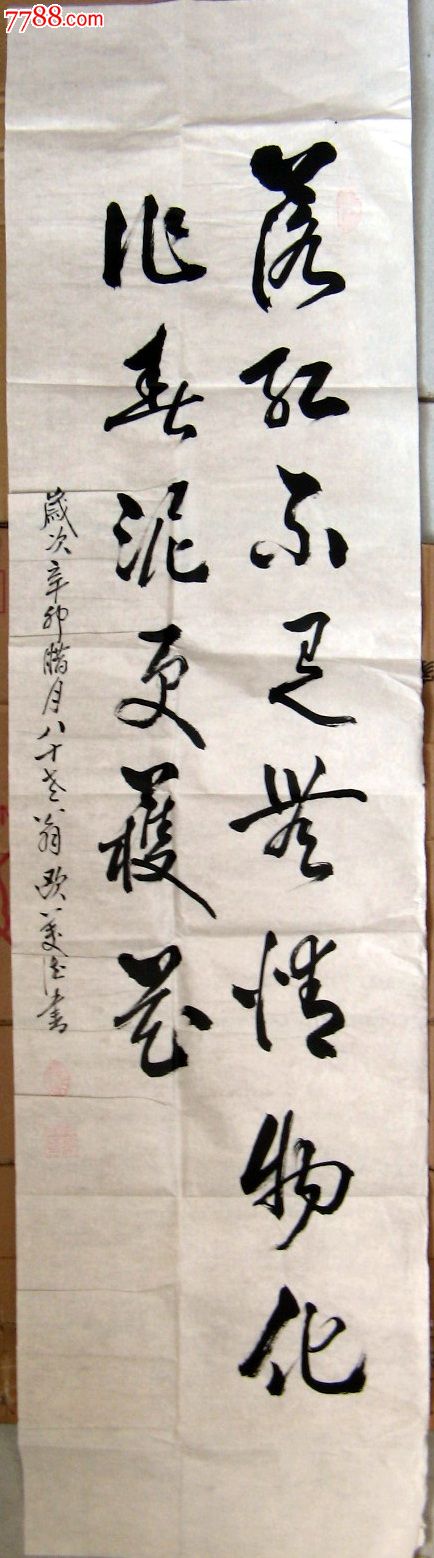 7788.com
落红不是無情物化
作春泥更護花
歲次辛卯腊月八十老翁欧書